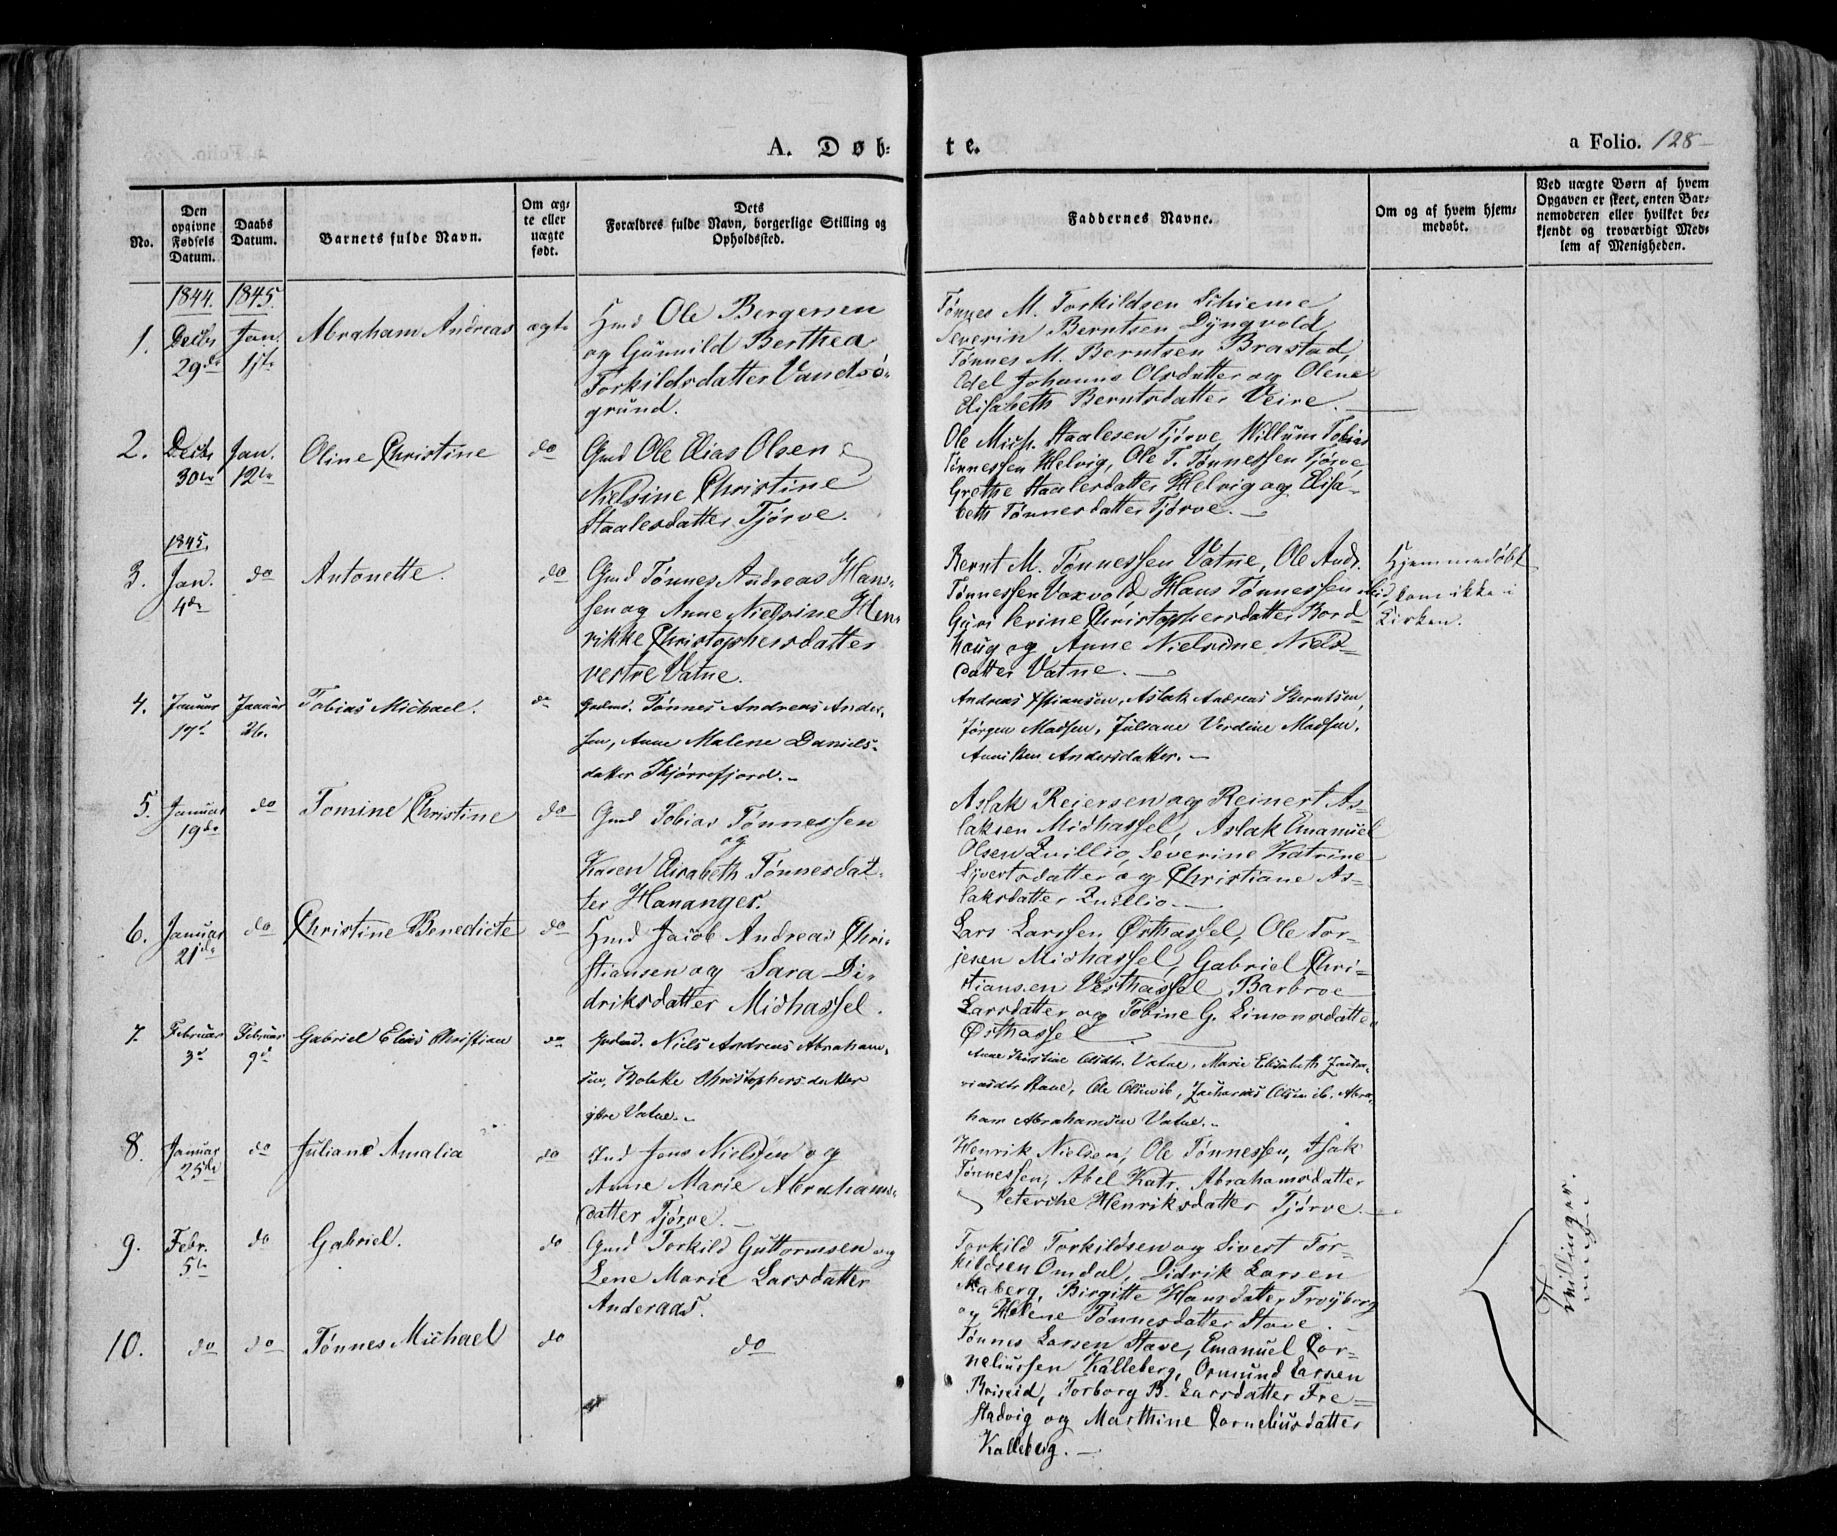 A. Døb-te.
a Folio. 128
No.
Den opgivne Fødsels Datum.
Daabs Datum.
Barnets fulde Navn.
Om ægte eller uægte født.
Dets Forældres fulde Navn, borgerlige Stilling og Opholdssted.
Faddernes Navne.
Om og af hvem hjemmedøbt.
Ved uægte Børn af hvem Opgaven er skeet, enten Barnemoderen eller hvilket bekjendt og troværdigt Medlem af Menigheden.
1844. 1845.
1. Decbr 29de Jan. 1ste Abraham Andreas ægte
Hmd Ole Bergersen
og Gunnild Berthea
Torkildsdatter Vandsö-
grund.
Tønnes M. Torkildsen Schieme
Severin Berntsen Dyngvold,
Tønnes M. Berntsen Brastad,
Edel Johanna Olsdatter og Olene
Elisabeth Berntsdatter Veire.
2. Decbr 30te Jan. 12te Oline Christine do
Gmd Ole Elias Olsen
Nielsine Christine
Staalesdatter Tjörve.
Ole Mich. Staalesen Tjörve, Willum Tobias
Tönnessen Helvig, Ole T. Tönnessen Tjörve,
Grethe Staalesdatter Helvig og Elisa-
beth Tönnesdatter Tjörve.
1845.
3. Jan. 4de do Antonette. do
Gmd Tønnes Andreas Han-
sen og Anne Nielsine Hen-
rikke Christophersdatter
vestre Vatne.
Bernt M. Tønnessen Vatne, Ole Andr.
Tønnessen Vaxvold, Hans Tønnessen
Guri Serine Christophersdatter Bord-
haug og Anne Nielsine Niels-
datter Vatne.
Hjemmedöbt
kom ikke i
Kirken.
4. Januar 17de Januar 26. Tobias Michael. do
Gaardmd. Tønnes Andreas Ander-
sen, Anne Malene Daniels-
datter Skjörrefjord.
Andreas Xstiansen, Aslak Andreas Berntsen,
Jörgen Madsen, Juliane Verdine Madsen,
Anniken Andersdatter.
5. Januar 19de do Tomine Christine do
Gmd Tobias Tønnessen
og
Karen Elisabeth Tønnesdat-
ter Hananger.
Aslak Reiersen og Reinert As-
laksen Midhassel, Aslak Emanuel
Olsen Qvillio, Severine Katrine
Sivertsdatter og Christiane As-
laksdatter Qvillio.
6. Januar 21de do Christine Benedicte do
Hmd Jacob Andreas Chri-
stiansen og Sara Di-
driksdatter Midhassel.
Lars Larssen Østhassel, Ole Tor-
jesen Midhassel, Gabriel Chri-
stiansen Vesthassel, Barbroe
Larsdatter og Tobine G. Simonsdatter
Østhassel
7. Februar 3d Februar 9d Gabriel Elias Christian do
Gaardmd. Niels Andreas Abraham-
sen, Bolette Christophersdatter
ytre Vatne.
Anne Kirstine Olsdtr. Vatne, Marie Elisabeth Zacha-
riasdtr Stave, Ole Olsen ib, Zacharias Olsen ib. Abra-
ham Abrahamsen Vatne.
8. Januar 25de do Juliane Amalia do
Ind Jens Nielsen og
Anne Marie Abrahams-
datter Tjörve.
Henrik Nielsen, Ole Tønnessen, Isak
Tønnessen, Abel Katr. Abrahamsdatter
Peterike Henriksdatter Tjörve.
9. Febr. 5te do Gabriel. do
Gmd Torkild Guttormsen og
Lene Marie Larsdatter
Anderaas.
Torkild Torkildsen og Sivert Tor-
kildsen Omdal, Didrik Larsen
Maberg, Birgitte Hansdatter Tröyborg
og Helene Tønnesdatter Stave.
10. do do Tönnes Michael do
do
Tønnes Larsen Stave, Emanuel Cor-
neliussen Kalleberg, Ormund Larsen
Briseid, Torborg B. Larsdatter Fre-
stadvig og Marthine Corneliusdatter
Kalleberg.
Tvillinger.